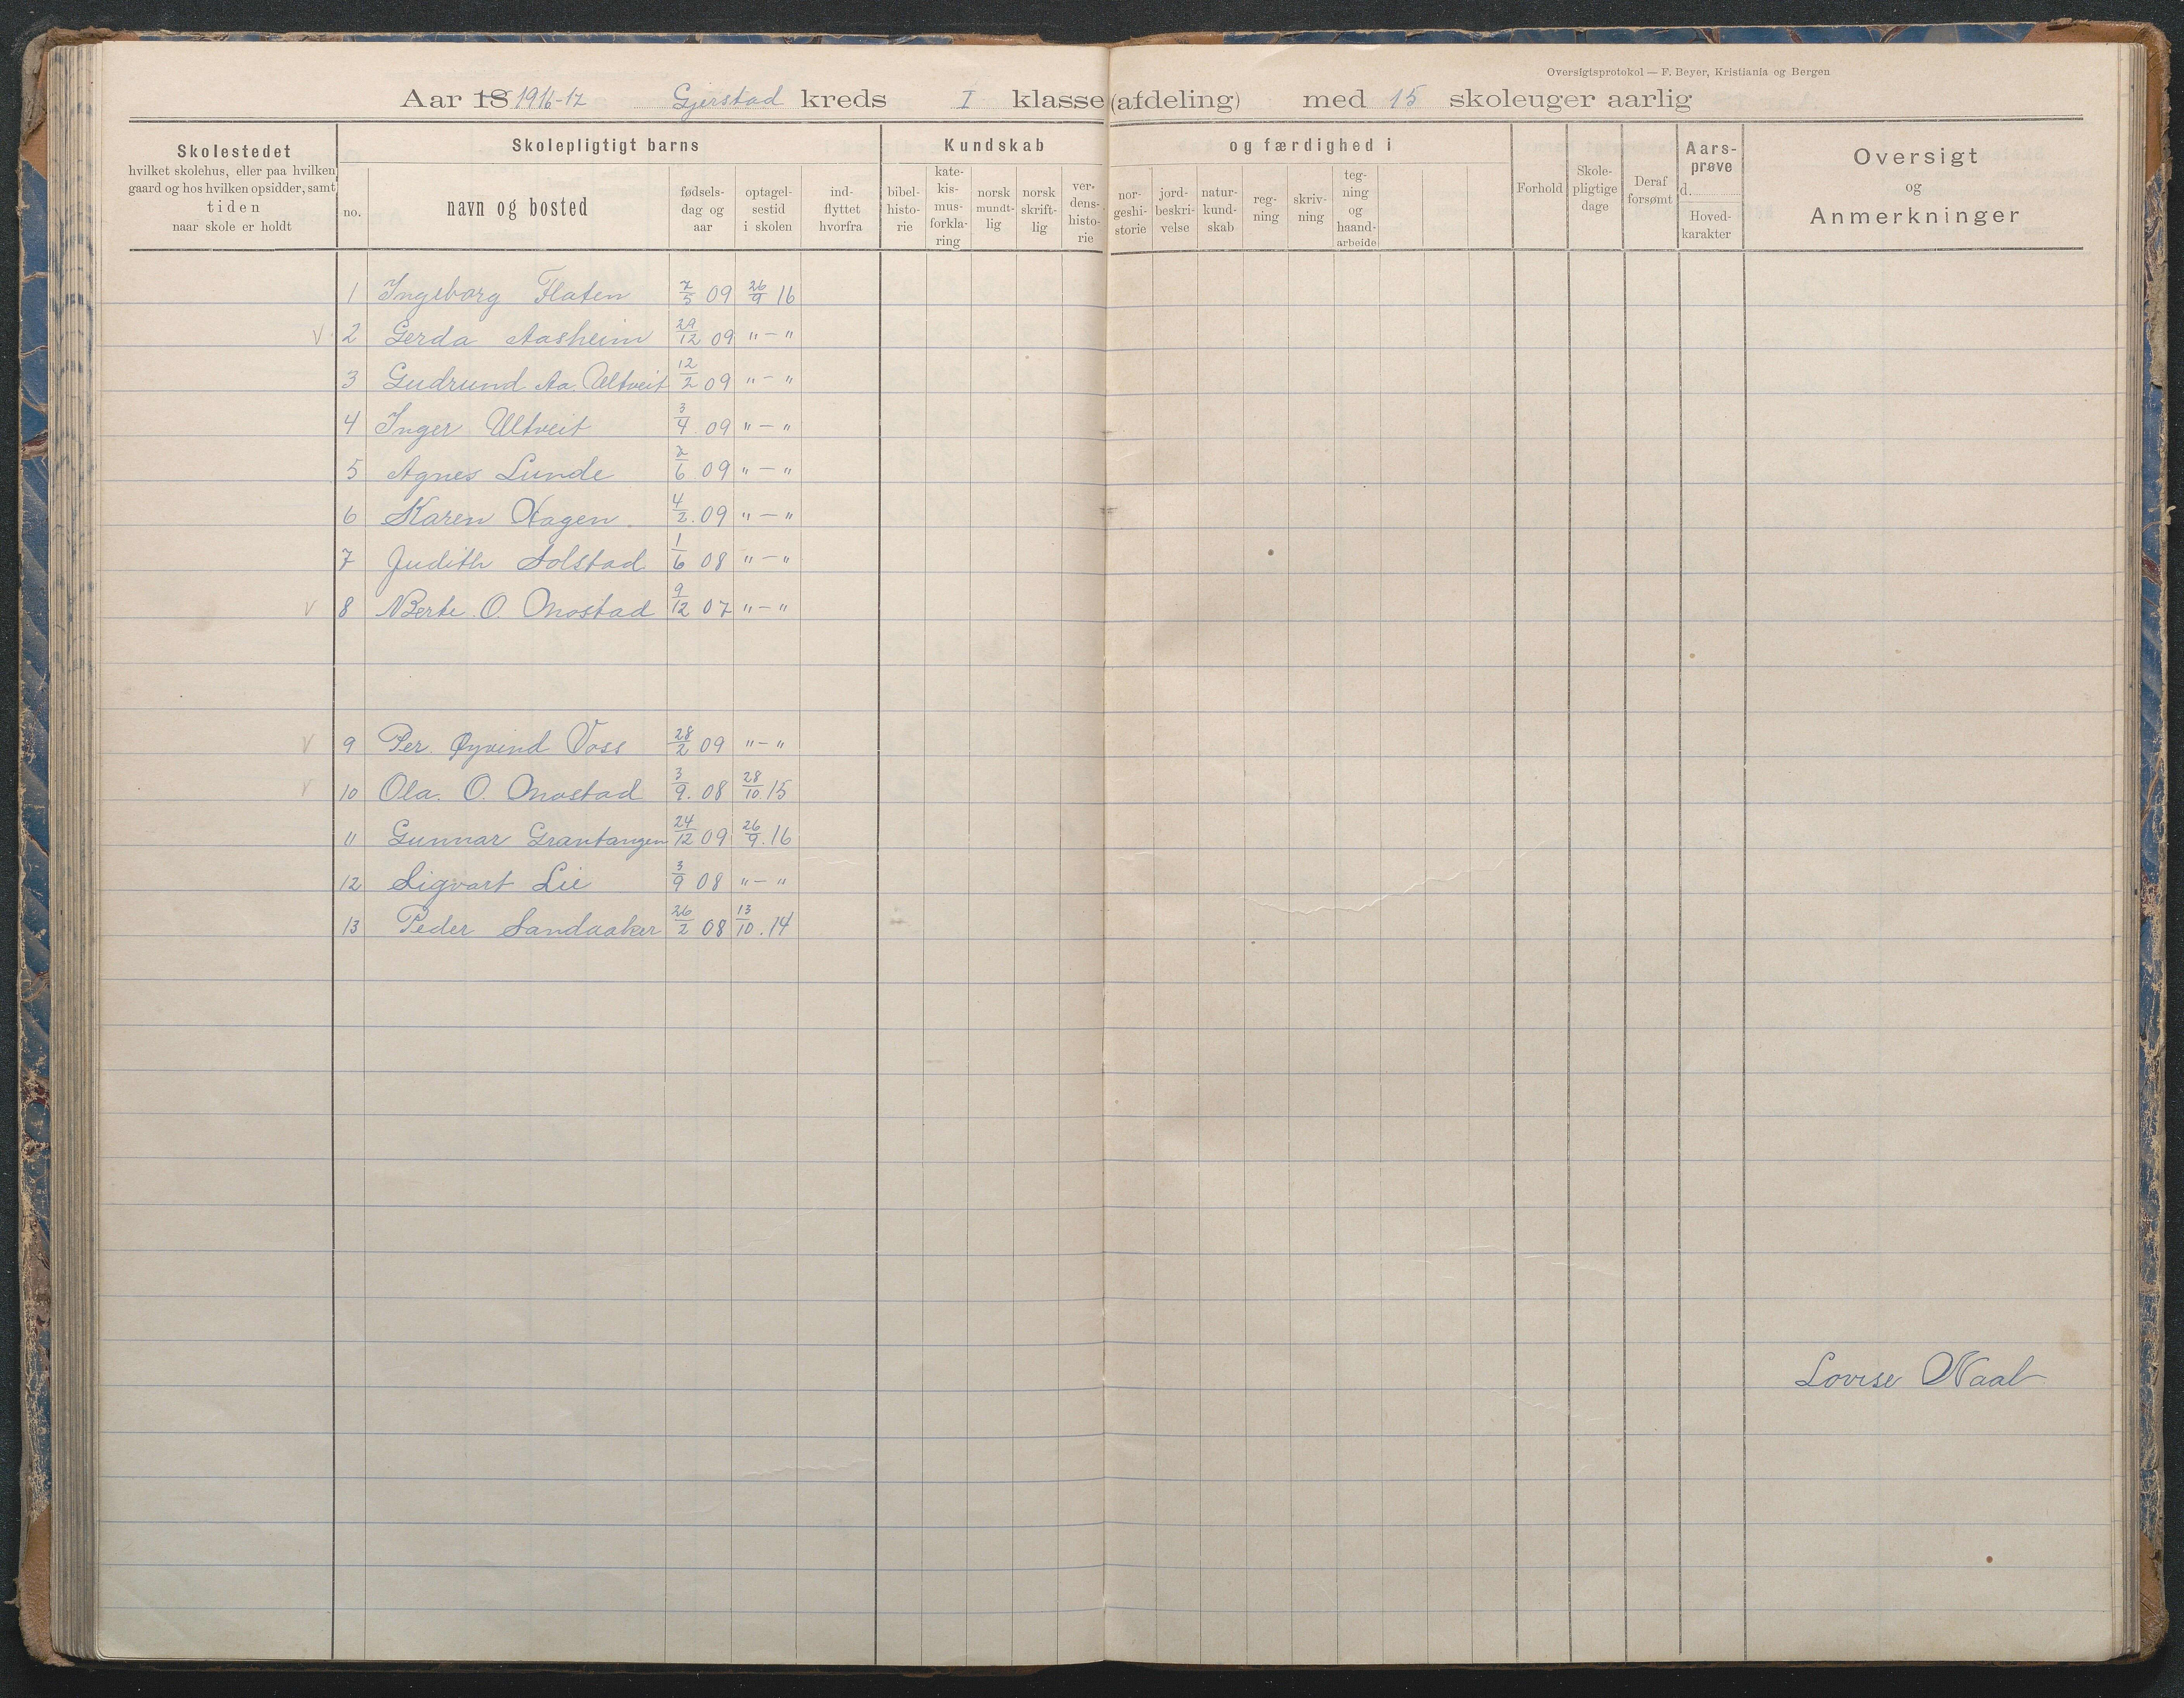 Oversigtsprotokol — F. Beyer, Kristiania og Bergen
Aar 18 1916-17 Gjerstad kreds I klasse (afdeling) med 15 skoleuger aarlig
Skolestedet
hvilket skolehus, eller paa hvilken
gaard og hos hvilken opsidder, samt
tiden
naar skole er holdt
Skolepligtigt barns
no.
navn og bosted
fødsels-
dag og
aar
optagel-
sestid
i skolen
ind-
flyttet
hvorfra
Kundskab og færdighed i
bibel-
histo-
rie
kate-
kis-
mus-
forkla-
ring
norsk
mundt-
lig
norsk
skrift-
lig
ver-
dens-
histo-
rie
nor-
geshi-
storie
jord-
beskri-
velse
natur-
kund-
skab
reg-
ning
skriv-
ning
teg-
ning
og
haand-
arbeide
Forhold
Skole-
pligtige
dage
Deraf
forsømt
Aars-
prøve
d.
Hoved-
karakter
Oversigt
og
Anmerkninger
1 Ingeborg Flaten 7/5 09 26/9 16
V 2 Gerda Aasheim 29/12 09 " — "
3 Gudrund Aa. Ulltveit 12/2 09 " — "
4 Inger Ulltveit 3/4. 09 " — "
5 Agnes Lunde 2/6 09 " — "
6 Karen Hagen. 4/2. 09 " — "
7 Judith Solstad 1/6 08 " — "
V 8 Berte O. Mostad 9/12 07 " — "
V 9 Per Øyvind Voss 28/2 09 " — "
V 10 Ola. O. Mostad 3/9. 08 28/10. 15
11 Gunnar Grantangen 24/12 09 26/9. 16
12 Sigvart Lie 3/9 08 " — "
13 Peder Sandaaker 26/2 08 13/10. 14
Lovise